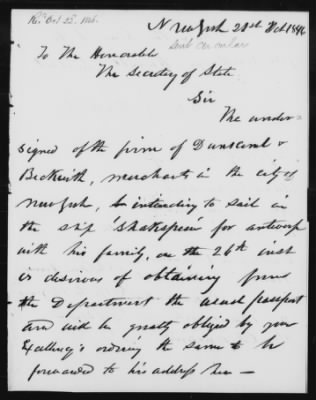 Rec. Oct 22. 1846.
New York 21st Oct 1846
sent circular
To The Honorable
The Secretary of State
Sir
The under-
signed of the firm of Dunscomb &
Beckwith, merchants in the city of
New York, intending to sail in
the ship 'Shakespeare' for antwerp
with his family, on the 26th inst
is desirous of obtaining from
the Department the usual passport
and will be greatly obliged by your
Excellency's ordering the same to be
forwarded to his address here —